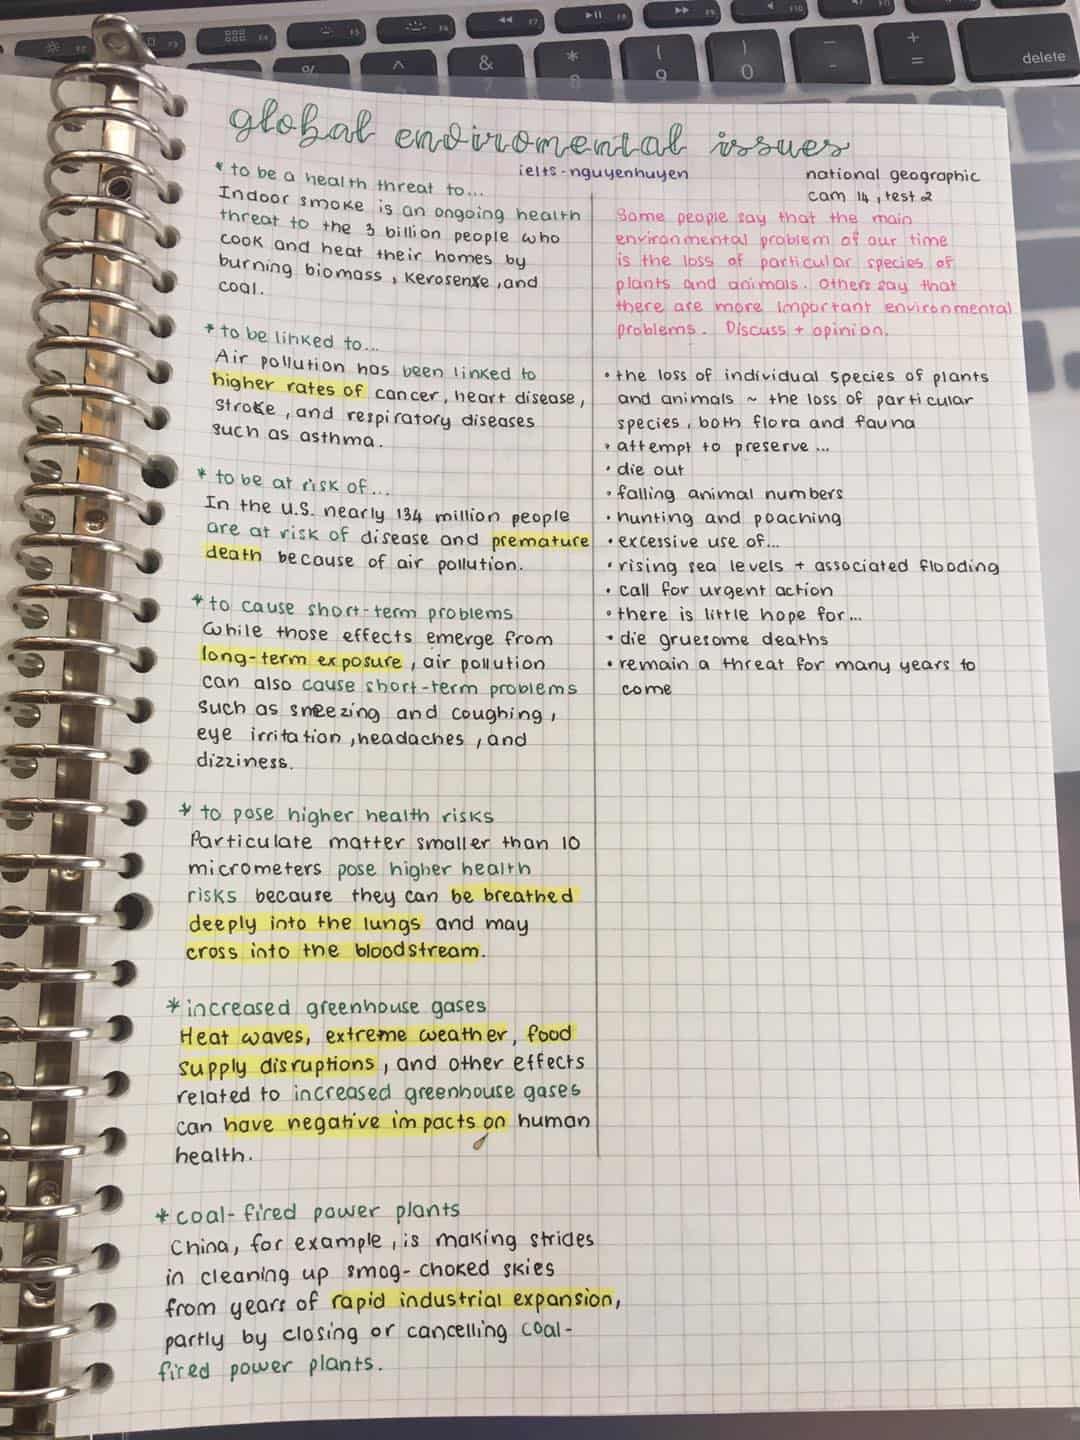 F2
F3
F4
F5
F6
F7
F8
F9
F10
%
^
&
*
(
9
)
0
-
+
=
delete
global enviromental issues
ielts-nguyenhuyen
national geographic
cam 14, test 2
* to be a health threat to...
Indoor smoke is an ongoing health
threat to the 3 billion people who
cook and heat their homes by
burning biomass, kerosense, and
coal.
* to be linked to...
Air pollution has been linked to
higher rates of cancer, heart disease,
stroke, and respiratory diseases
such as asthma.
* to be at risk of...
In the U.S. nearly 134 million people
are at risk of disease and premature
death because of air pollution.
* to cause short-term problems
While those effects emerge from
long-term exposure, air pollution
can also cause short-term problems
such as sneezing and coughing,
eye irritation, headaches, and
dizziness.
* to pose higher health risks
Particulate matter smaller than 10
micrometers pose higher health
risks because they can be breathed
deeply into the lungs and may
cross into the bloodstream.
* increased greenhouse gases
Heat waves, extreme weather, food
supply disruptions, and other effects
related to increased greenhouse gases
can have negative impacts on human
health.
* coal-fired power plants
China, for example, is making strides
in cleaning up smog-choked skies
from years of rapid industrial expansion,
partly by closing or cancelling coal-
fired power plants.
Some people say that the main
environmental problem of our time
is the loss of particular species of
plants and animals. Others say that
there are more important environmental
problems. Discuss + opinion.
• the loss of individual species of plants
and animals ~ the loss of particular
species, both flora and fauna
• attempt to preserve...
• die out
• falling animal numbers
• hunting and poaching
• excessive use of...
• rising sea levels + associated flooding
• call for urgent action
• there is little hope for...
• die gruesome deaths
• remain a threat for many years to
come